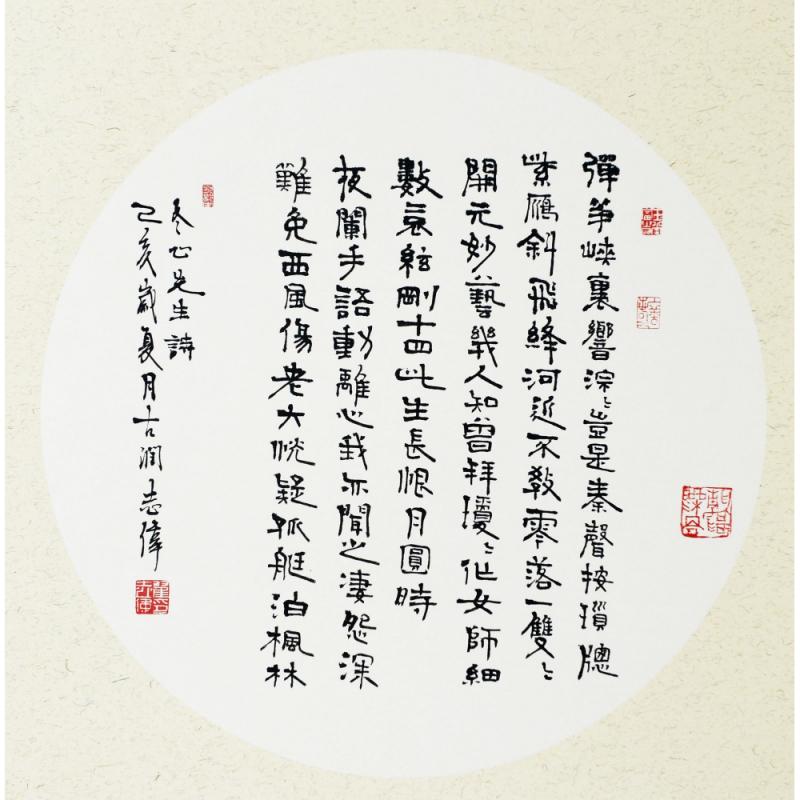 彈箏峽裏響淙淙豈是秦聲按瑣牕
紫雁斜飛絳河近不教零落一雙雙
開元妙藝幾人知曾拜瓊瓊作女師細
數哀絃剛十四此生長恨月圓時
夜闌手語動離心我亦聞之淒怨深
難免西風傷老大恍疑孤艇泊楓林
冬心先生詩
己亥歲夏月古潤志偉